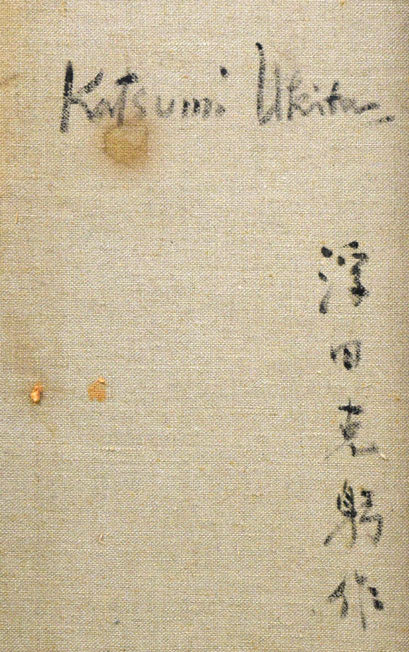 Katsumi Ukita
浮田克躬作